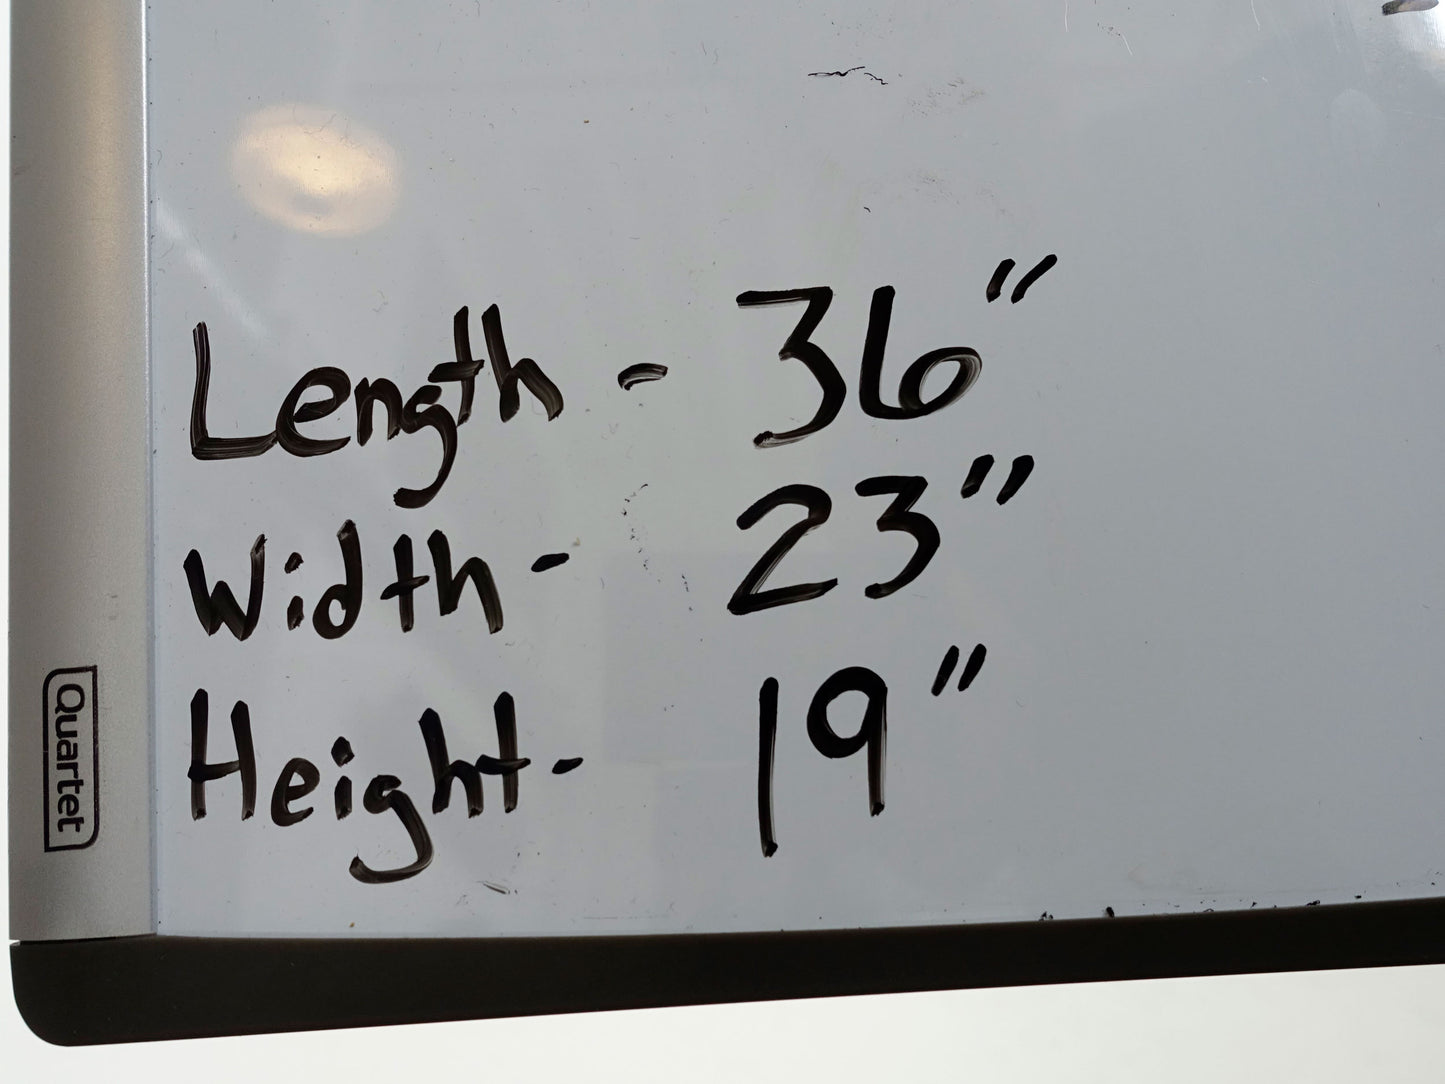 Length - 36"
Width - 23"
Height - 19"
Quartet